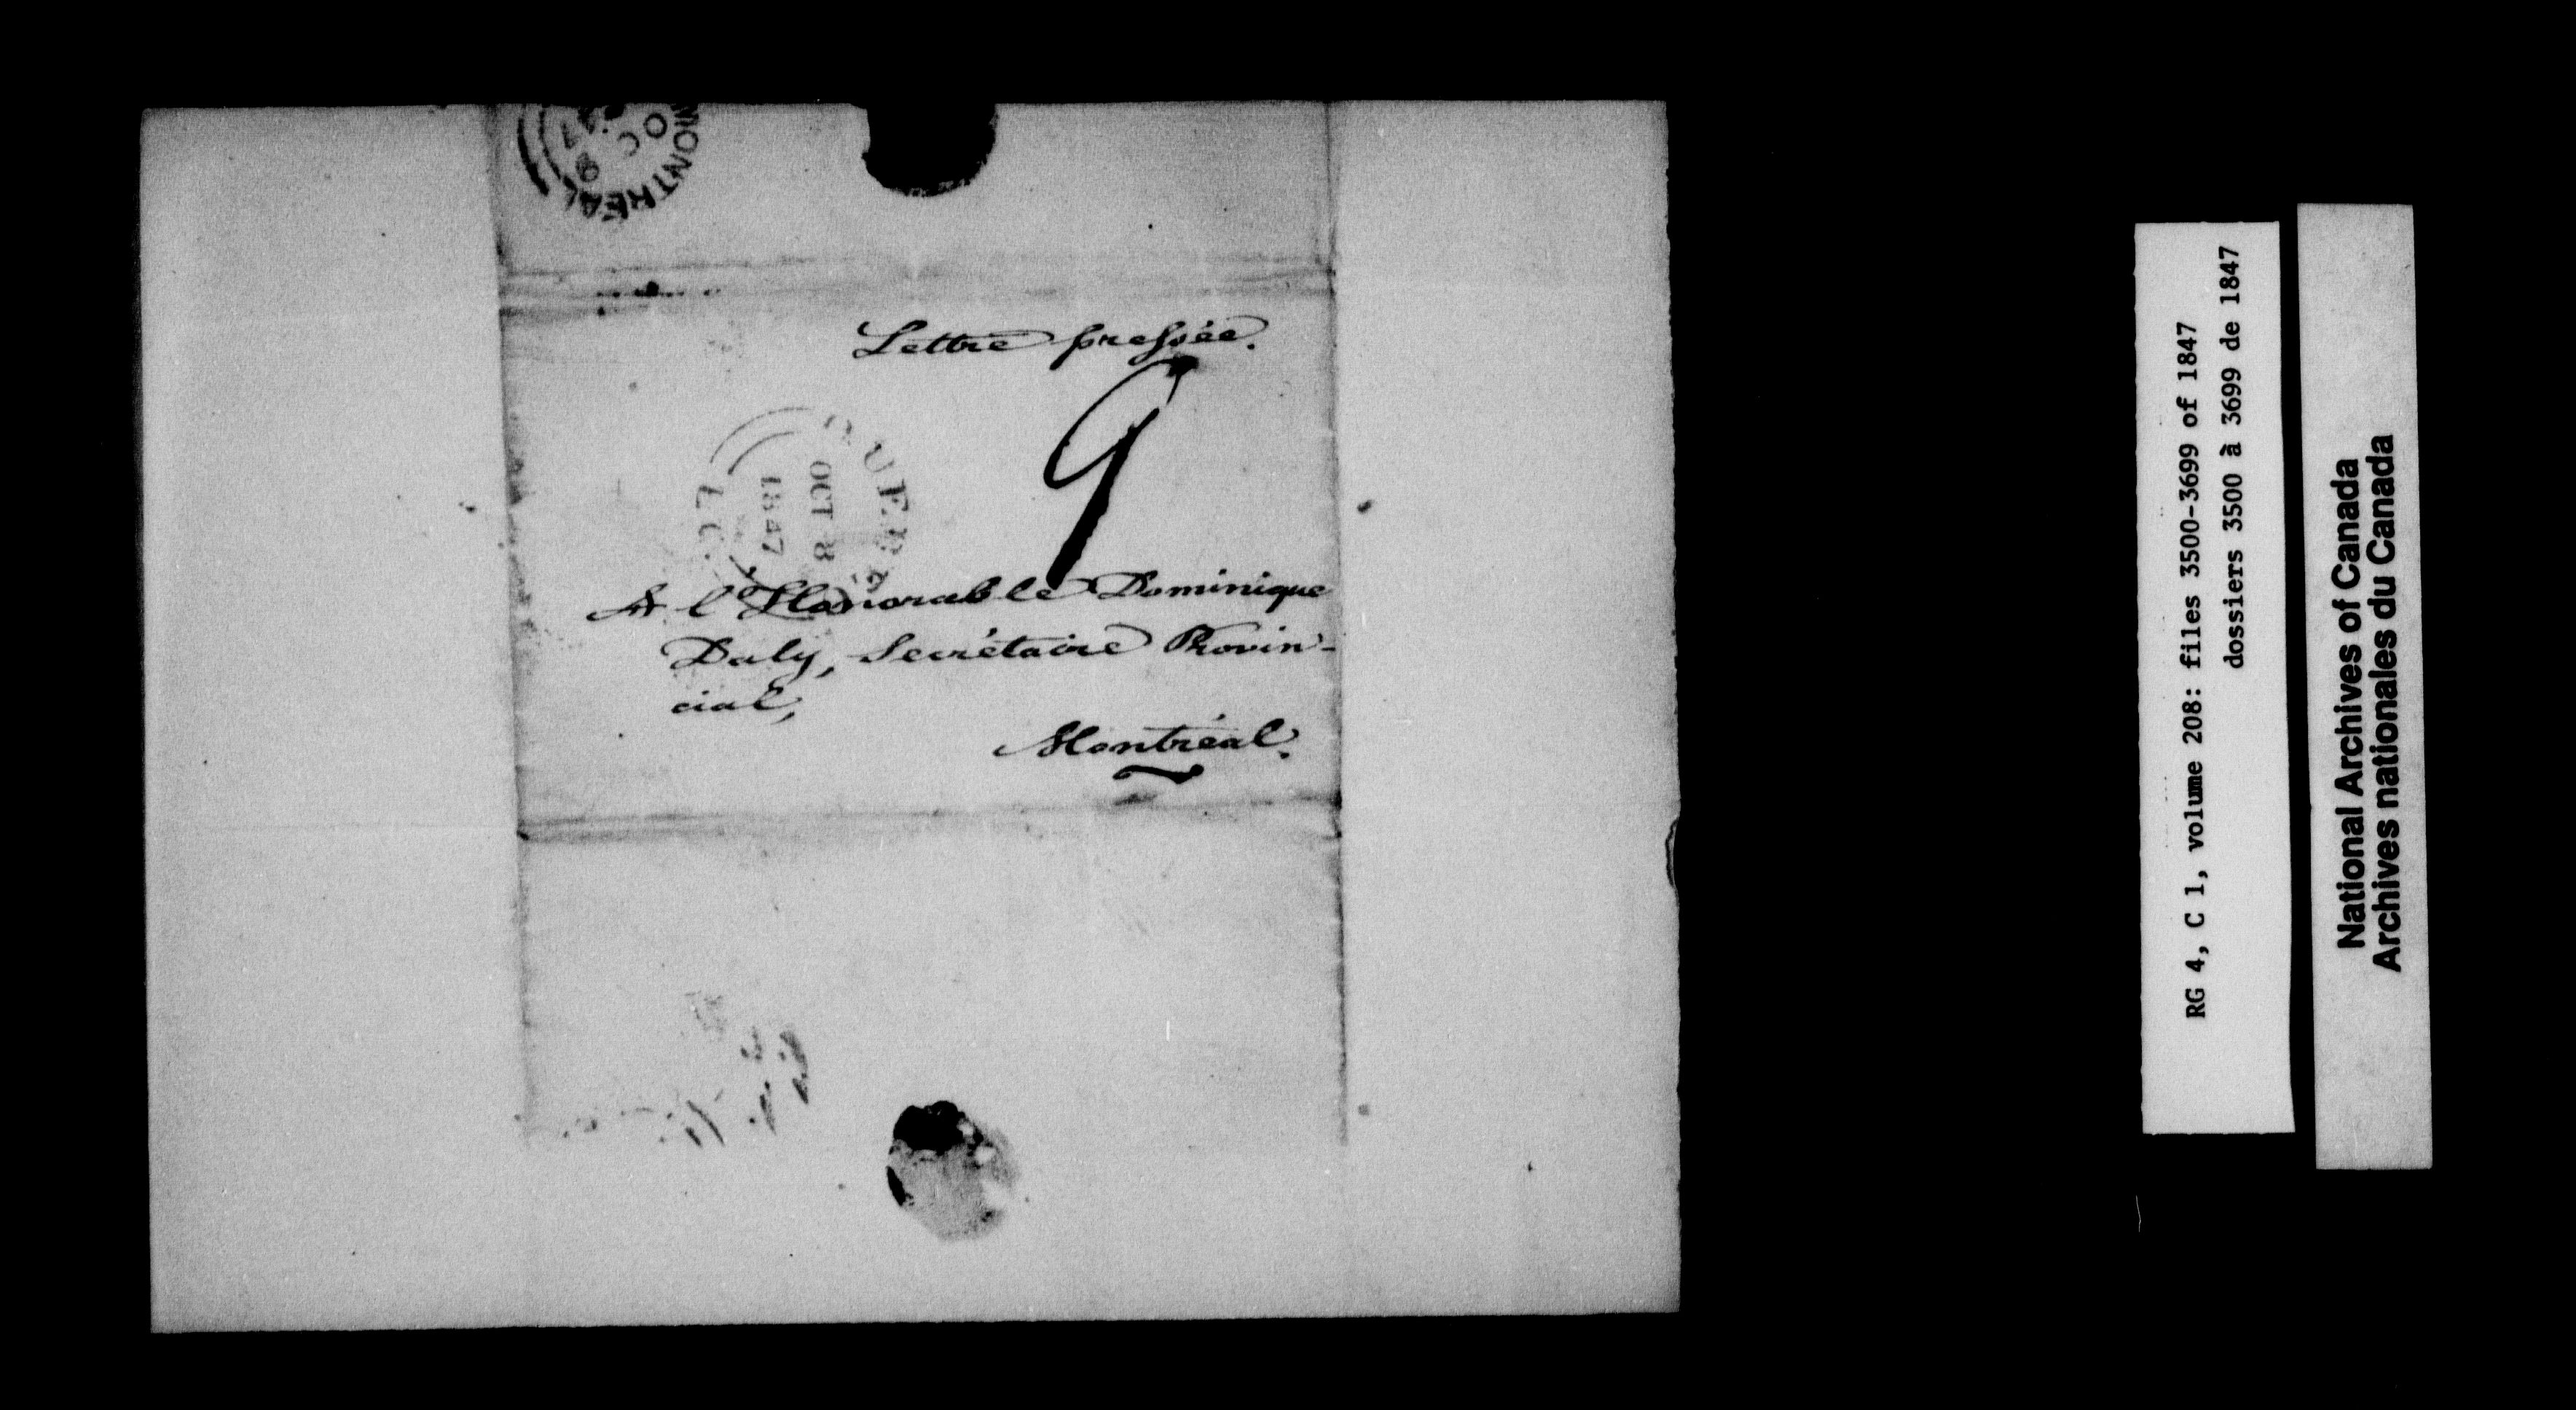 MONTREAL
OC 9
47
Lettre pressée.
9
QUEBEC
OCT 8
1847
L.C.
A l'Honorable Dominique
Daly, Secrétaire Provin-
cial,
Montréal.
RG 4, C 1, volume 208: files 3500-3699 of 1847
dossiers 3500 à 3699 de 1847
National Archives of Canada
Archives nationales du Canada